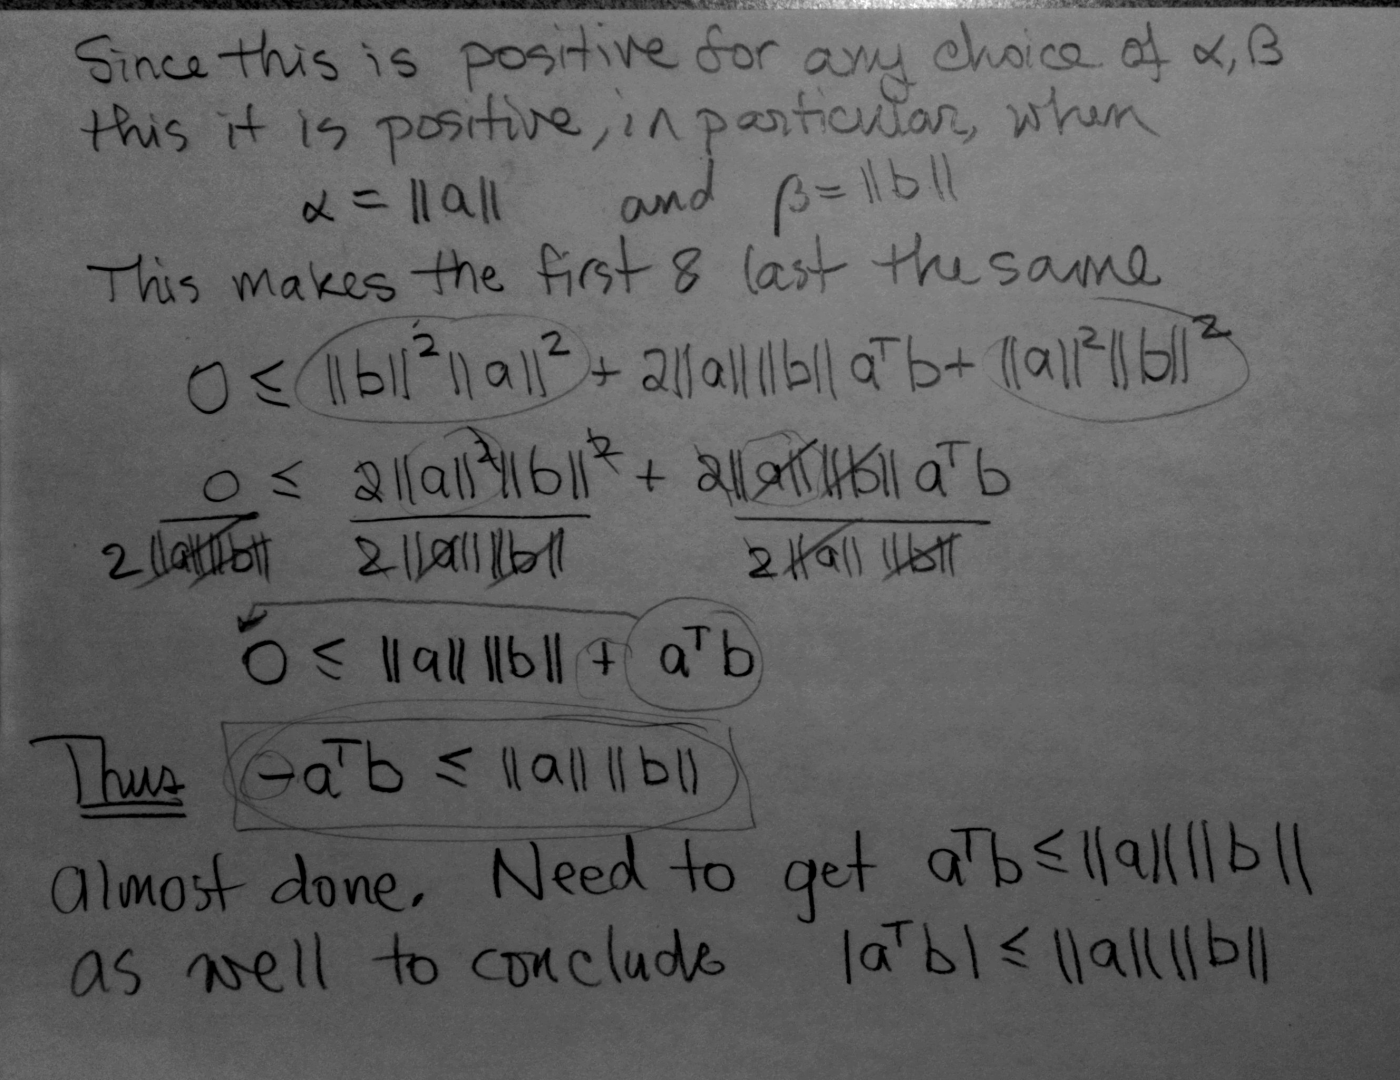 Since this is positive for any choice of α, β
this it is positive, in particular, when
α = ||a|| and β = ||b||
This makes the first & last the same
0 ≤ ||b||² ||a||² + 2||a|| ||b|| aᵀb + ||a||² ||b||²
0 ≤ 2||a||² ||b||² + 2||a|| ||b|| aᵀb
2||a|| ||b|| 2||a|| ||b|| 2||a|| ||b||
0 ≤ ||a|| ||b|| + aᵀb
Thus -aᵀb ≤ ||a|| ||b||
almost done. Need to get aᵀb ≤ ||a|| ||b||
as well to conclude |aᵀb| ≤ ||a|| ||b||